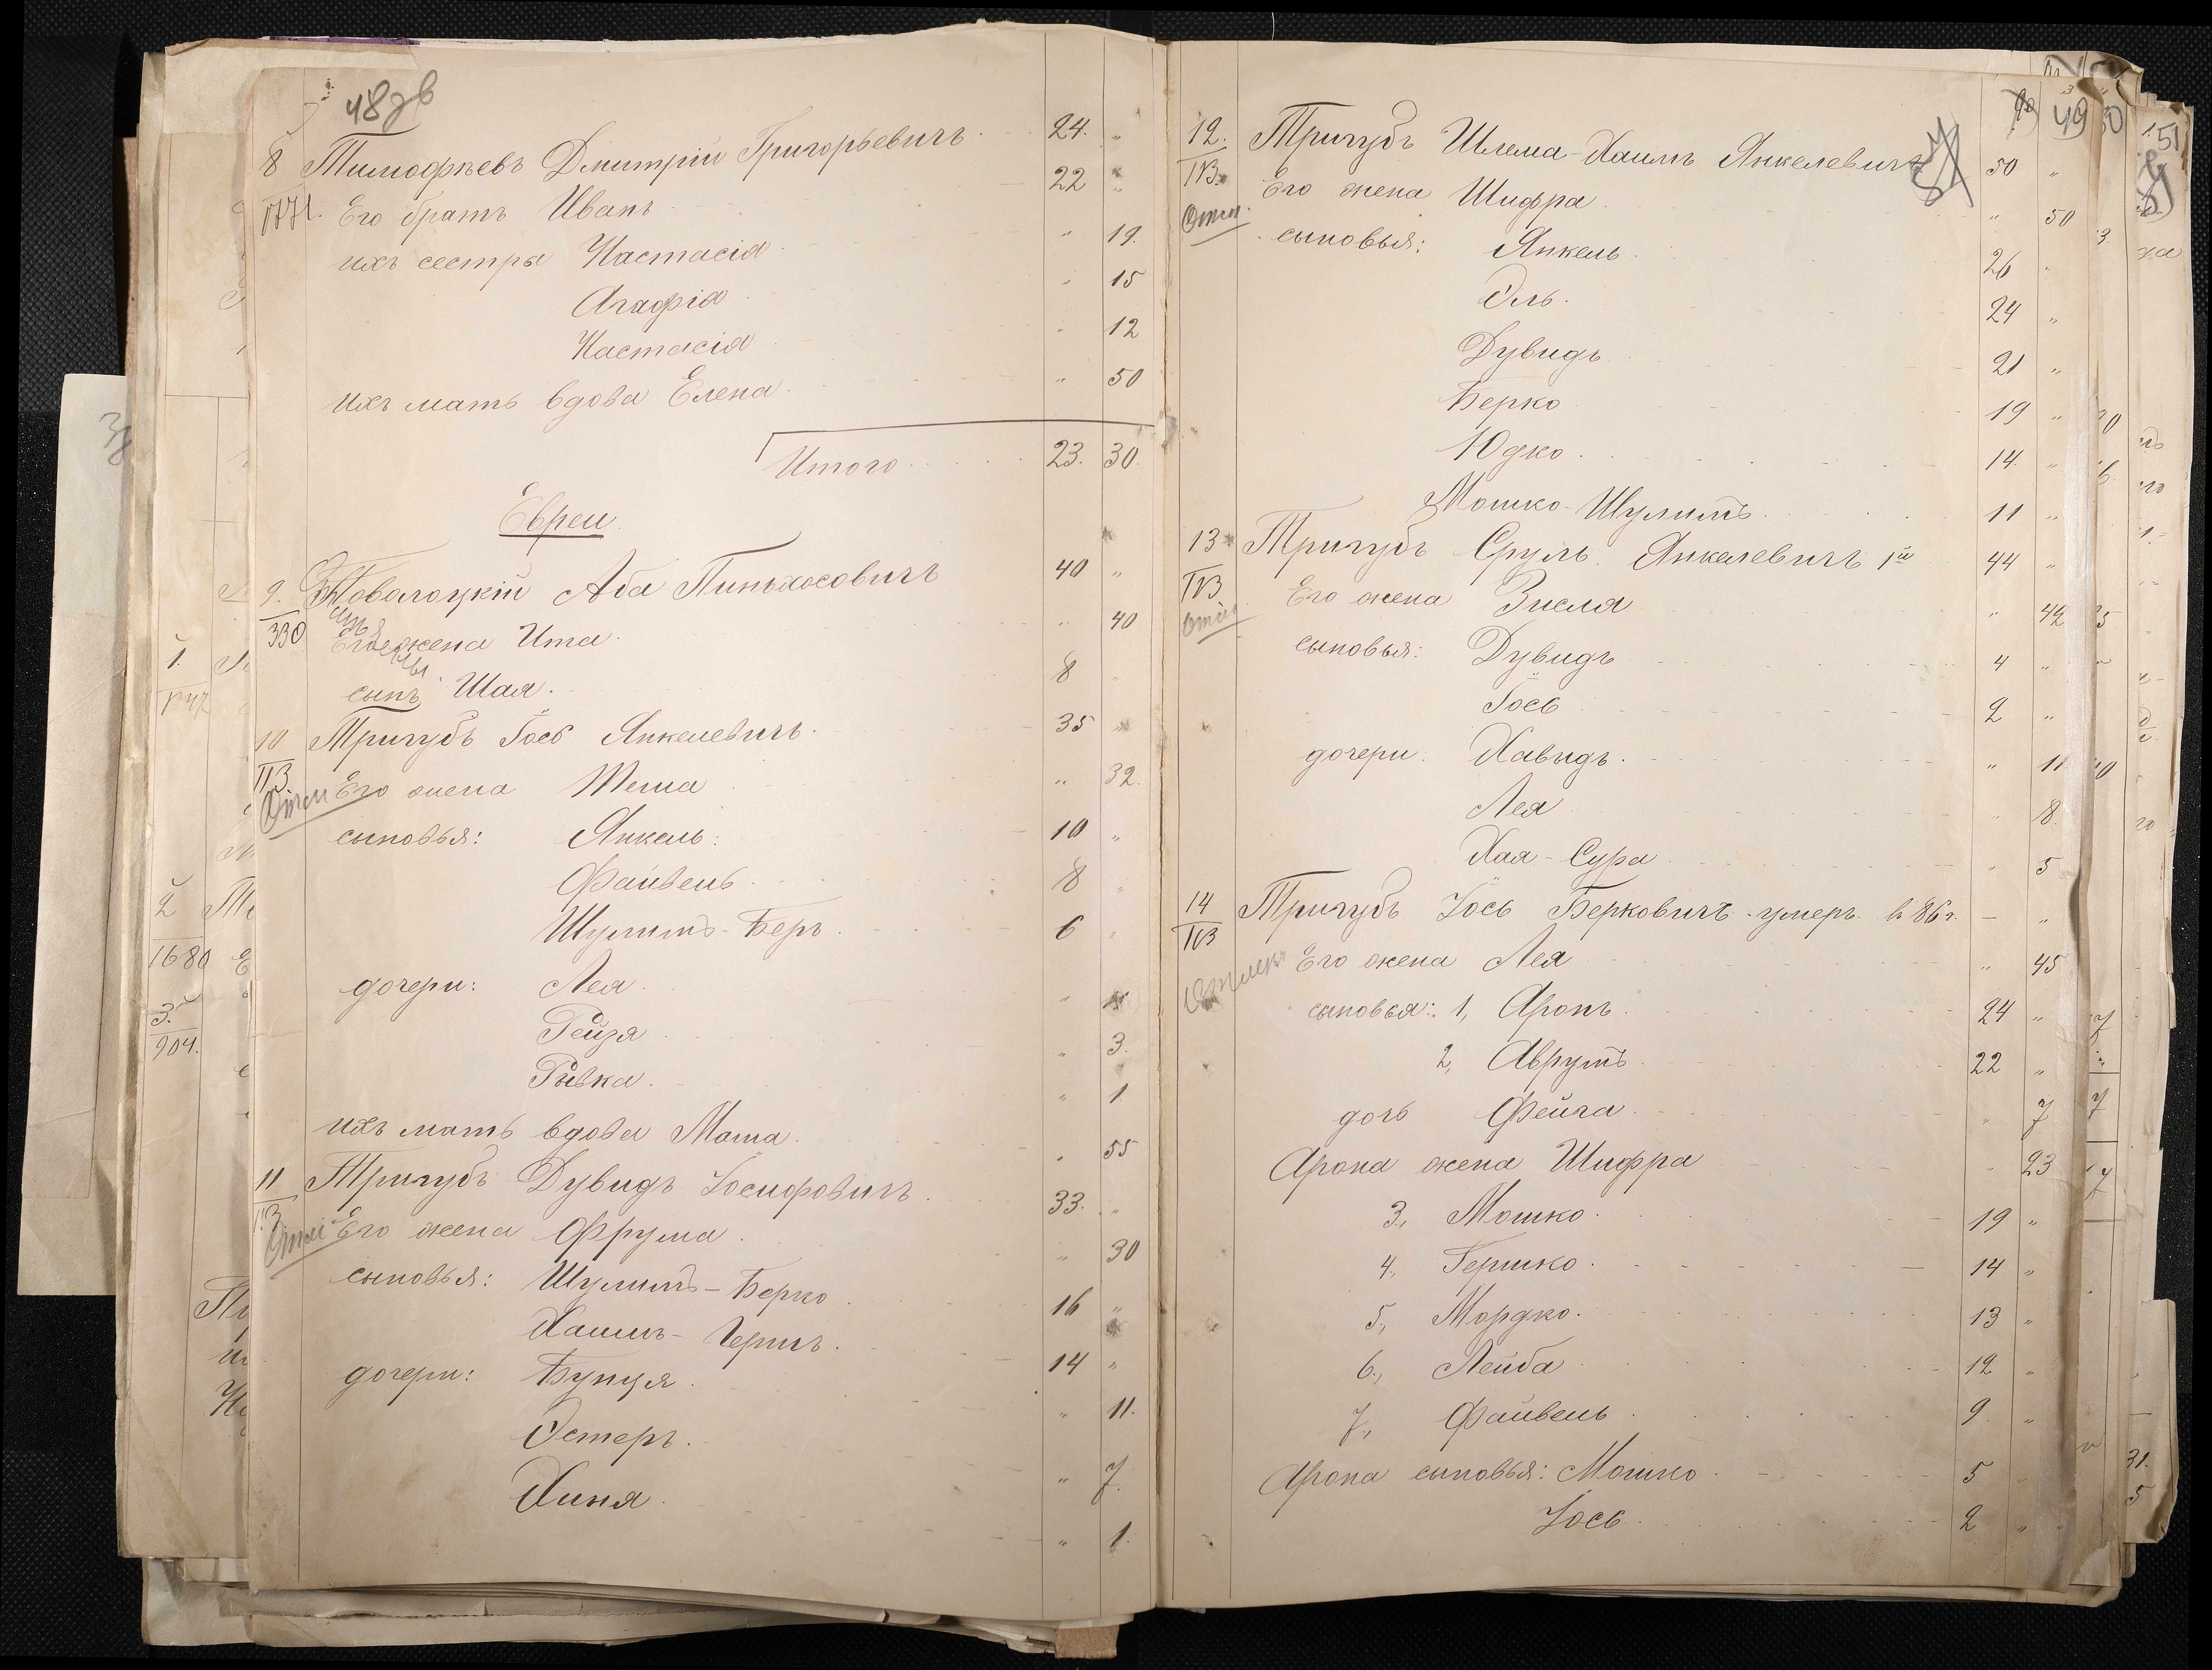 48 дв
8 Тимофѣевъ Дмитрій Григорьевичъ 24. „
1771. Его братъ Иванъ 22 „
ихъ сестра Настасія „ 19.
Агафія „ 15
Настасія „ 12
ихъ мать вдова Елена „ 50
Итого 23. 30.
Евреи
9. Новолоцкій Аба Пиньхосовичъ 40 „
330 Его жена Ита „ 40
сынъ Шая 8 „
10 Тригубъ Іось Янкелевичъ 35 „
ПВ Его жена Теша „ 32.
сыновья: Янкель 10 „
Файвель 8 „
Шулимъ-Беръ 6 „
дочери: Лея „
Рейзя „ 3.
Рывка „ 1
ихъ мать вдова Маша „ 55
11 Тригубъ Дувидъ Іосифовичъ 33. „
Его жена Фрума „ 30
сыновья: Шулимъ-Берко 16 „
Хаимъ-Гершъ 14 „
дочери: Бунця „ 11.
Эстеръ „ 7.
Хиня „ 1.
49
12. Тригубъ Шлема-Хаимъ Янкелевичъ 50 „
Его жена Шифра „ 50
сыновья: Янкель 26 „
Эль 24 „
Дувидъ 21 „
Берко 19 „
Юдко 14. „
Мошко-Шулимъ 11 „
13 Тригубъ Сруль Янкелевичъ 1й 44 „
Его жена Зисля „ 42
сыновья: Дувидъ 4 „
Іось 2 „
дочери: Хавыдъ „ 11
Лея „ 8.
Хая-Сура „ 5
14 Тригубъ Іось Берковичъ умеръ въ 86 г. — „
Его жена Лея „ 45
сыновья: 1, Аронъ 24 „
2, Аврумъ 22 „
дочь Фейга „ 7
Арона жена Шифра „ 23
3, Мошко 19 „
4, Гершко 14 „
5, Мордко 13 „
6, Лейба 12 „
7, Файвель 9 „
Арона сыновья: Мошко 5
Іось 2 „
51
1.
1680
904.